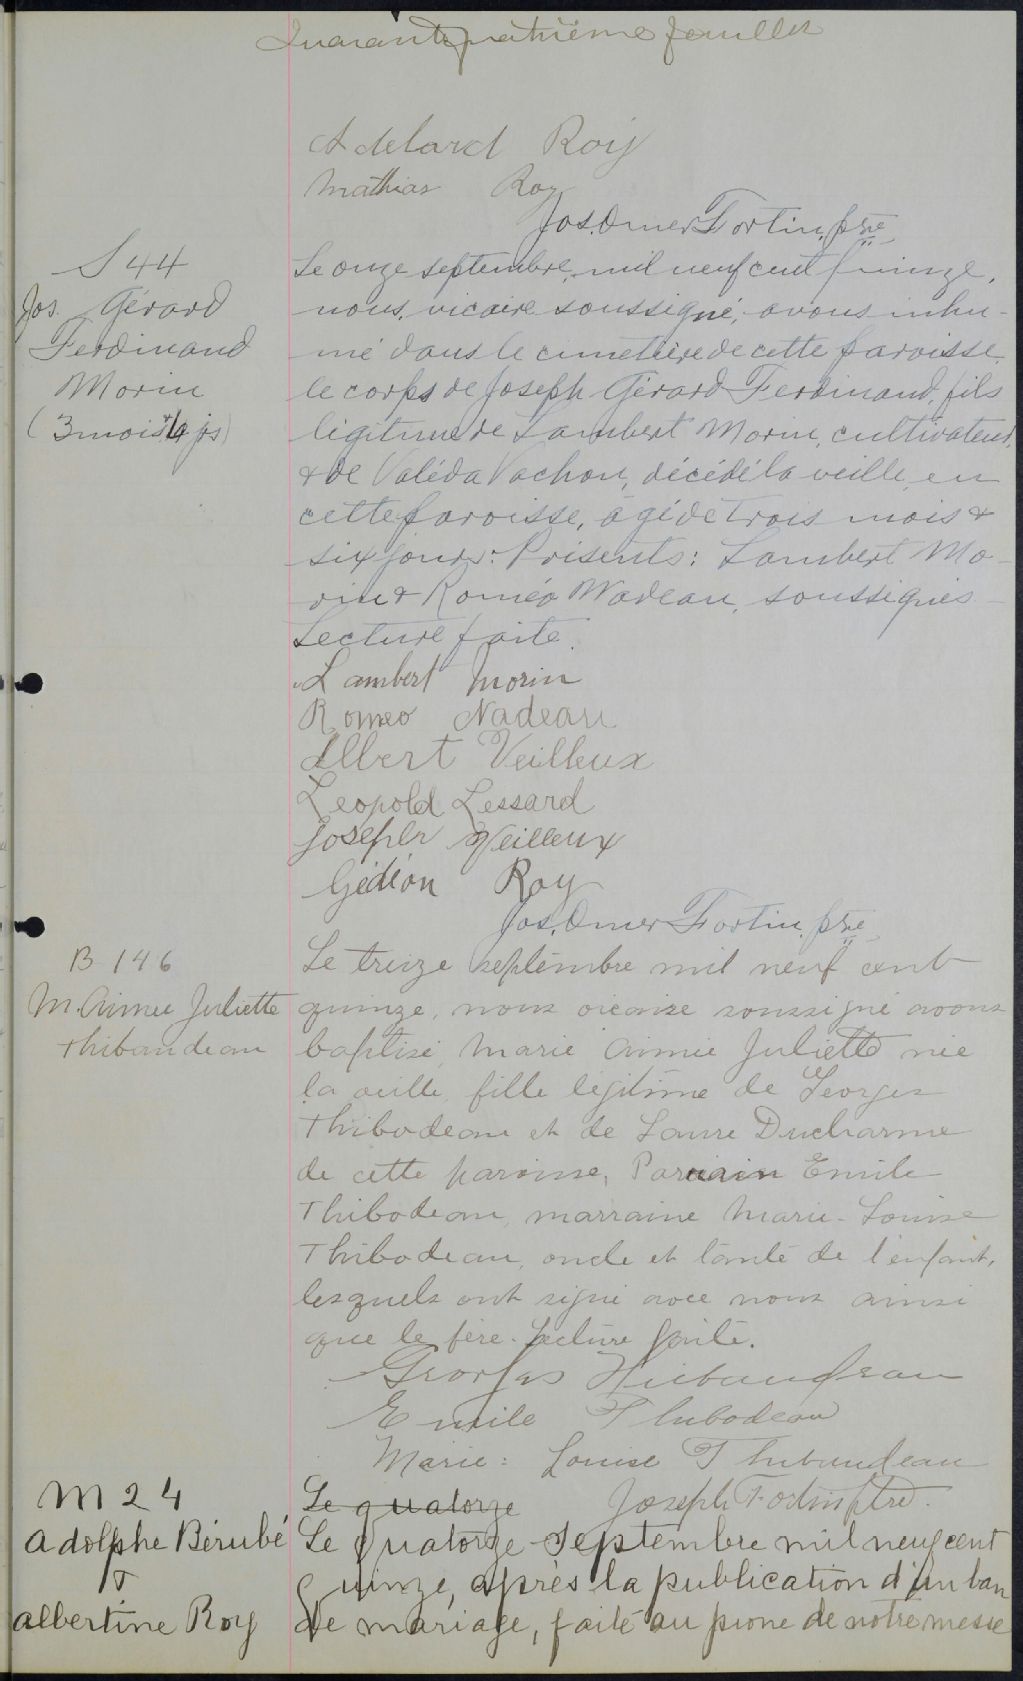 Quarante quatrième feuillet
Adelard Roy
Mathias Roy
Jos. Omer Fortin, ptre
S 44
Jos. Gérard
Ferdinand
Morin
(3 mois & js)
Le onze septembre, mil neuf cent quinze,
nous, vicaire soussigné, avons inhu-
mé dans le cimetière de cette paroisse
le corps de Joseph Gérard Ferdinand, fils
légitime de Lambert Morin, cultivateur,
& de Valéda Vachon, décédé la veille, en
cette paroisse, âgé de trois mois &
six jours. Présents: Lambert Mo-
rin & Roméo Nadeau, soussignés
Lecture faite.
Lambert Morin
Romeo Nadeau
Albert Veilleux
Leopold Lessard
Joseph Veilleux
Gédéon Roy
Jos. Omer Fortin, ptre
B 146
M. Aimée Juliette
Thibaudeau
Le treize septembre mil neuf cent
quinze, nous vicaire soussigné avons
baptisé, Marie Aimée Juliette née
la veille, fille légitime de Georges
Thibodeau et de Laure Ducharme
de cette paroisse, Parrain Emile
Thibodeau, marraine Marie-Louise
Thibodeau, oncle et tante de l'enfant,
lesquels ont signé avec nous ainsi
que le père. Lecture faite.
Georges Thibaudeau
Emile Thibodeau
Marie: Louise Thibaudeau
Le quatorze Joseph Fortin ptre.
M 24
Adolphe Bérubé
&
Albertine Roy
Le quatorze septembre mil neuf cent
quinze, après la publication d'un ban
de mariage, faite au prone de notre messe